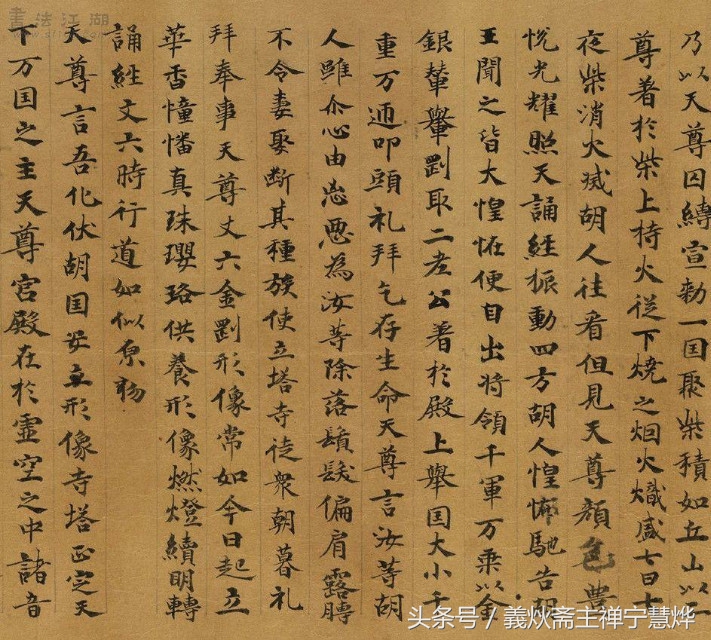 乃以天尊囚縛宣勑一国聚柴積如丘山以二
尊著於柴上持火従下焼之烟火熾盛七日七
夜柴消火滅胡人往看但見天尊顔色豊
悦光耀照天誦経振動四方胡人惶怖馳告胡
王聞之皆大惶怔便自出将領千軍万乗以金
銀輦轝㓻取二老公著於殿上舉国大小千
重万通叩頭礼拜乞存生命天尊言汝等胡
人雖尒心由悪為汝等除落鬚髮偏肩露膊
不令妻娶断其種族使立塔寺徒衆朝暮礼
拜奉事天尊丈六金剛形像常如今日起立
華香幢幡真珠瓔珞供養形像燃燈續明轉
誦経文六時行道如似原
天尊言吾化伏胡国安立形像寺塔正定天
下万国之主天尊宮殿在於虚空之中諸音
書法江湖
头条号／義炏斋主禅宁慧烨